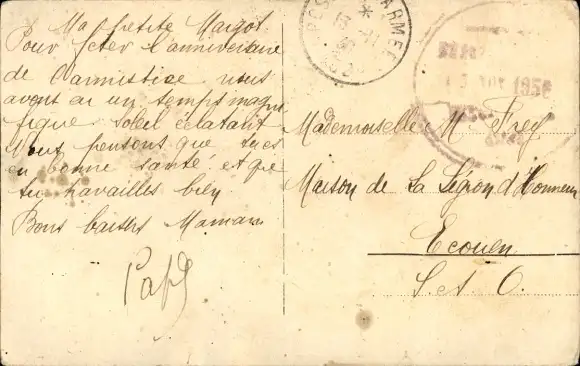 Ma petite Margot.
Pour feter l'anniversaire
de l'armistice nous
avons eu un temps magni
fique soleil éclatant
Nous pensons que tu es
en bonne santé et que
tu travailles bien
Bons baisers Maman
Papa
POSTE ARMEE
Mademoiselle M. Frey
Maison de La Légion d'Honneur
Ecouen
S. et O.